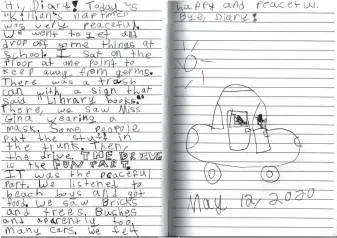 Hi, Diary! Today's
"Killian's nap time"
was very peaceful.
We went to get and
drop off some things at
school. I sat on the
floor at one point to
keep away from germs.
There was a trash
can with a sign that
said "Library books."
There, we saw Miss
Gina wearing a
mask. Some people
put the stuff in
the trunk. Then,
the drive. THE DRIVE
is the FUN PART.
IT was the peaceful
part. We listened to
beach boys and got
food. We saw Bricks
and trees, Bushes
and apparently too
many cars. We felt
happy and peaceful.
Bye, Diary!
May 12, 2020